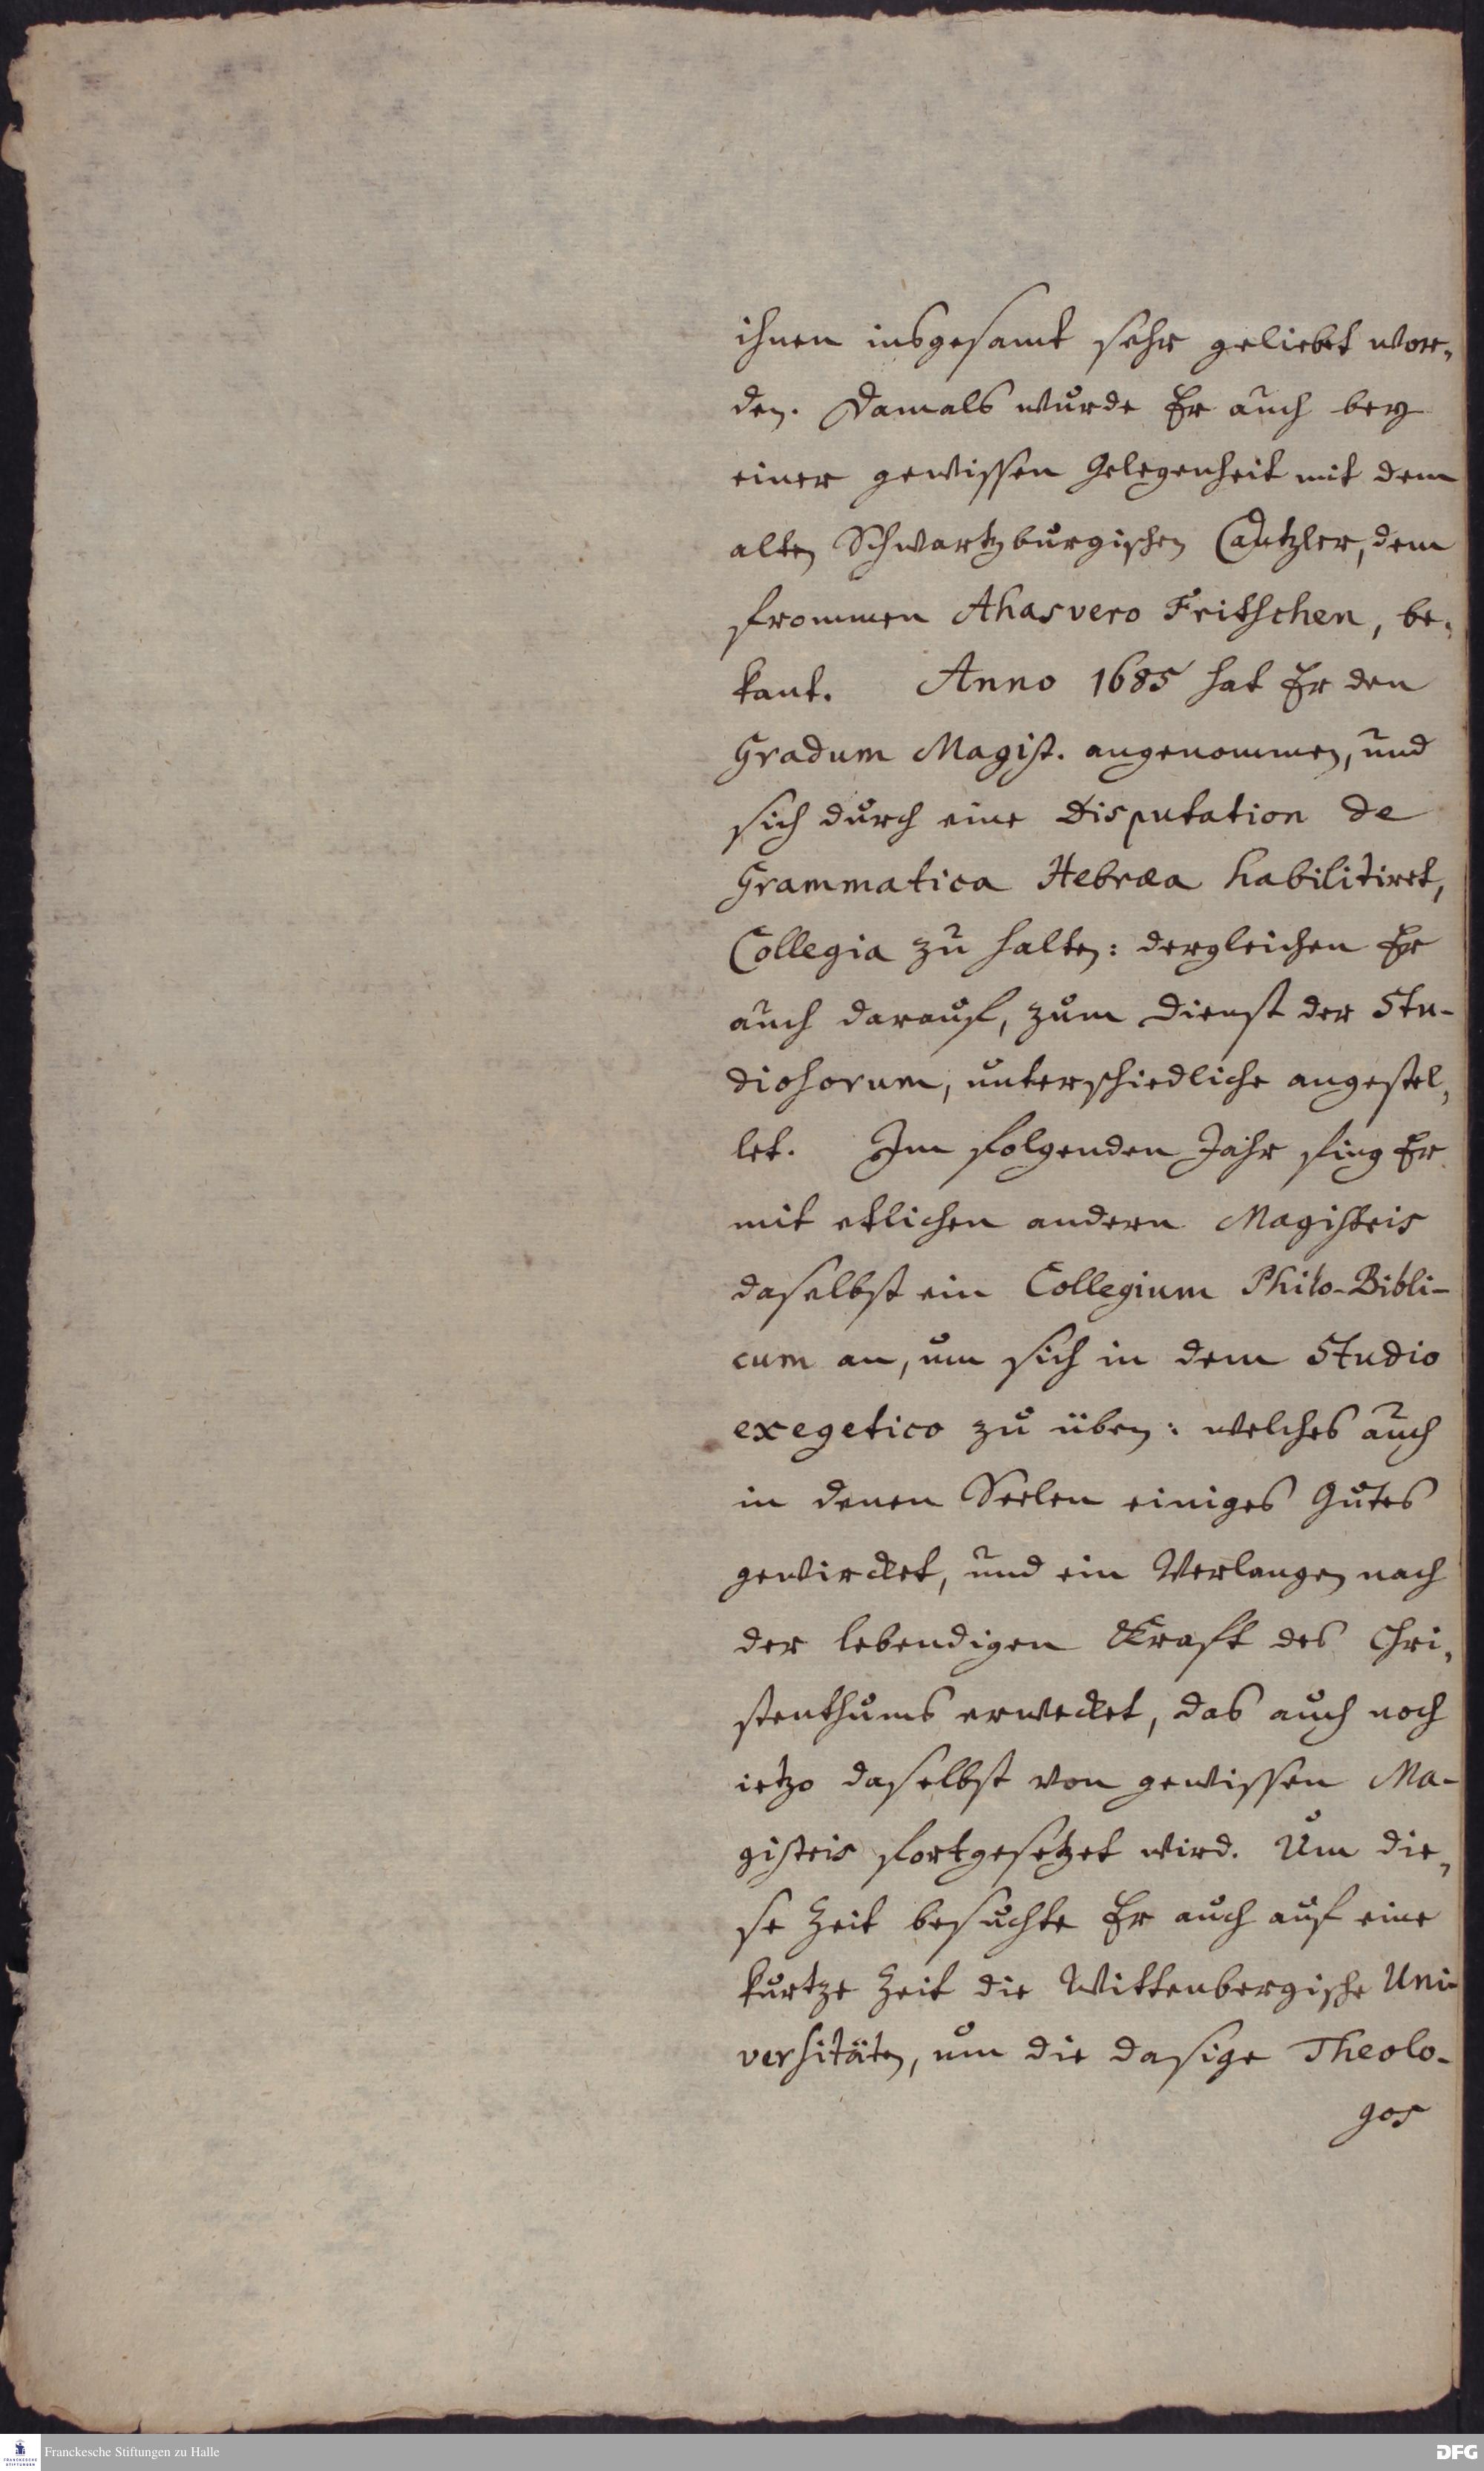 ihnen insgesamt sehr geliebet wor-
den. Damals wurde Er auch bey
einer gewissen Gelegenheit mit dem
alten Schwartzburgischen Cantzler, dem
frommen Ahasvero Fritschen, be-
kant. Anno 1685 hat Er den
Gradum Magist. angenommen, und
sich durch eine Disputation de
Grammatica Hebræa habilitiret,
Collegia zu halten: dergleichen Er
auch darauf, zum Dienst der Stu-
diosorum, unterschiedliche angestel-
let. Im folgenden Jahr fing Er
mit etlichen andern Magistris
daselbst ein Collegium Philo-Bibli-
cum an, um sich in dem Studio
exegetico zu üben: welches auch
in denen Seelen einiges Gutes
gewircket, und ein Verlangen nach
der lebendigen Krafft des Chri-
stenthums erwecket, das auch noch
ietzo daselbst von gewissen Ma-
gistris fortgesetzet wird. Um die-
se Zeit besuchte Er auch auf eine
kurtze Zeit die Wittenbergische Uni-
versitäten, um die dasige Theolo-
gos
Franckesche Stiftungen zu Halle
FRANCKESCHE STIFTUNGEN
DFG